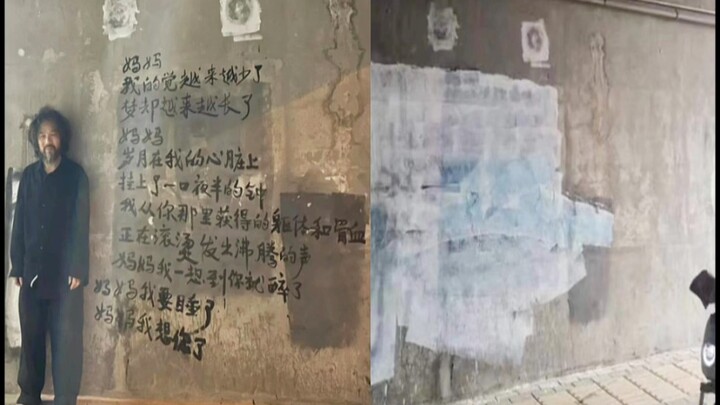 妈妈
我的觉越来越少了
梦却越来越长了
妈妈
岁月在我的心脏上
挂上了一口夜半的钟
我从你那里获得的躯体和骨血
正在滚烫发出沸腾的声
妈妈我一想到你就醉了
妈妈我要睡了
妈妈我想你了